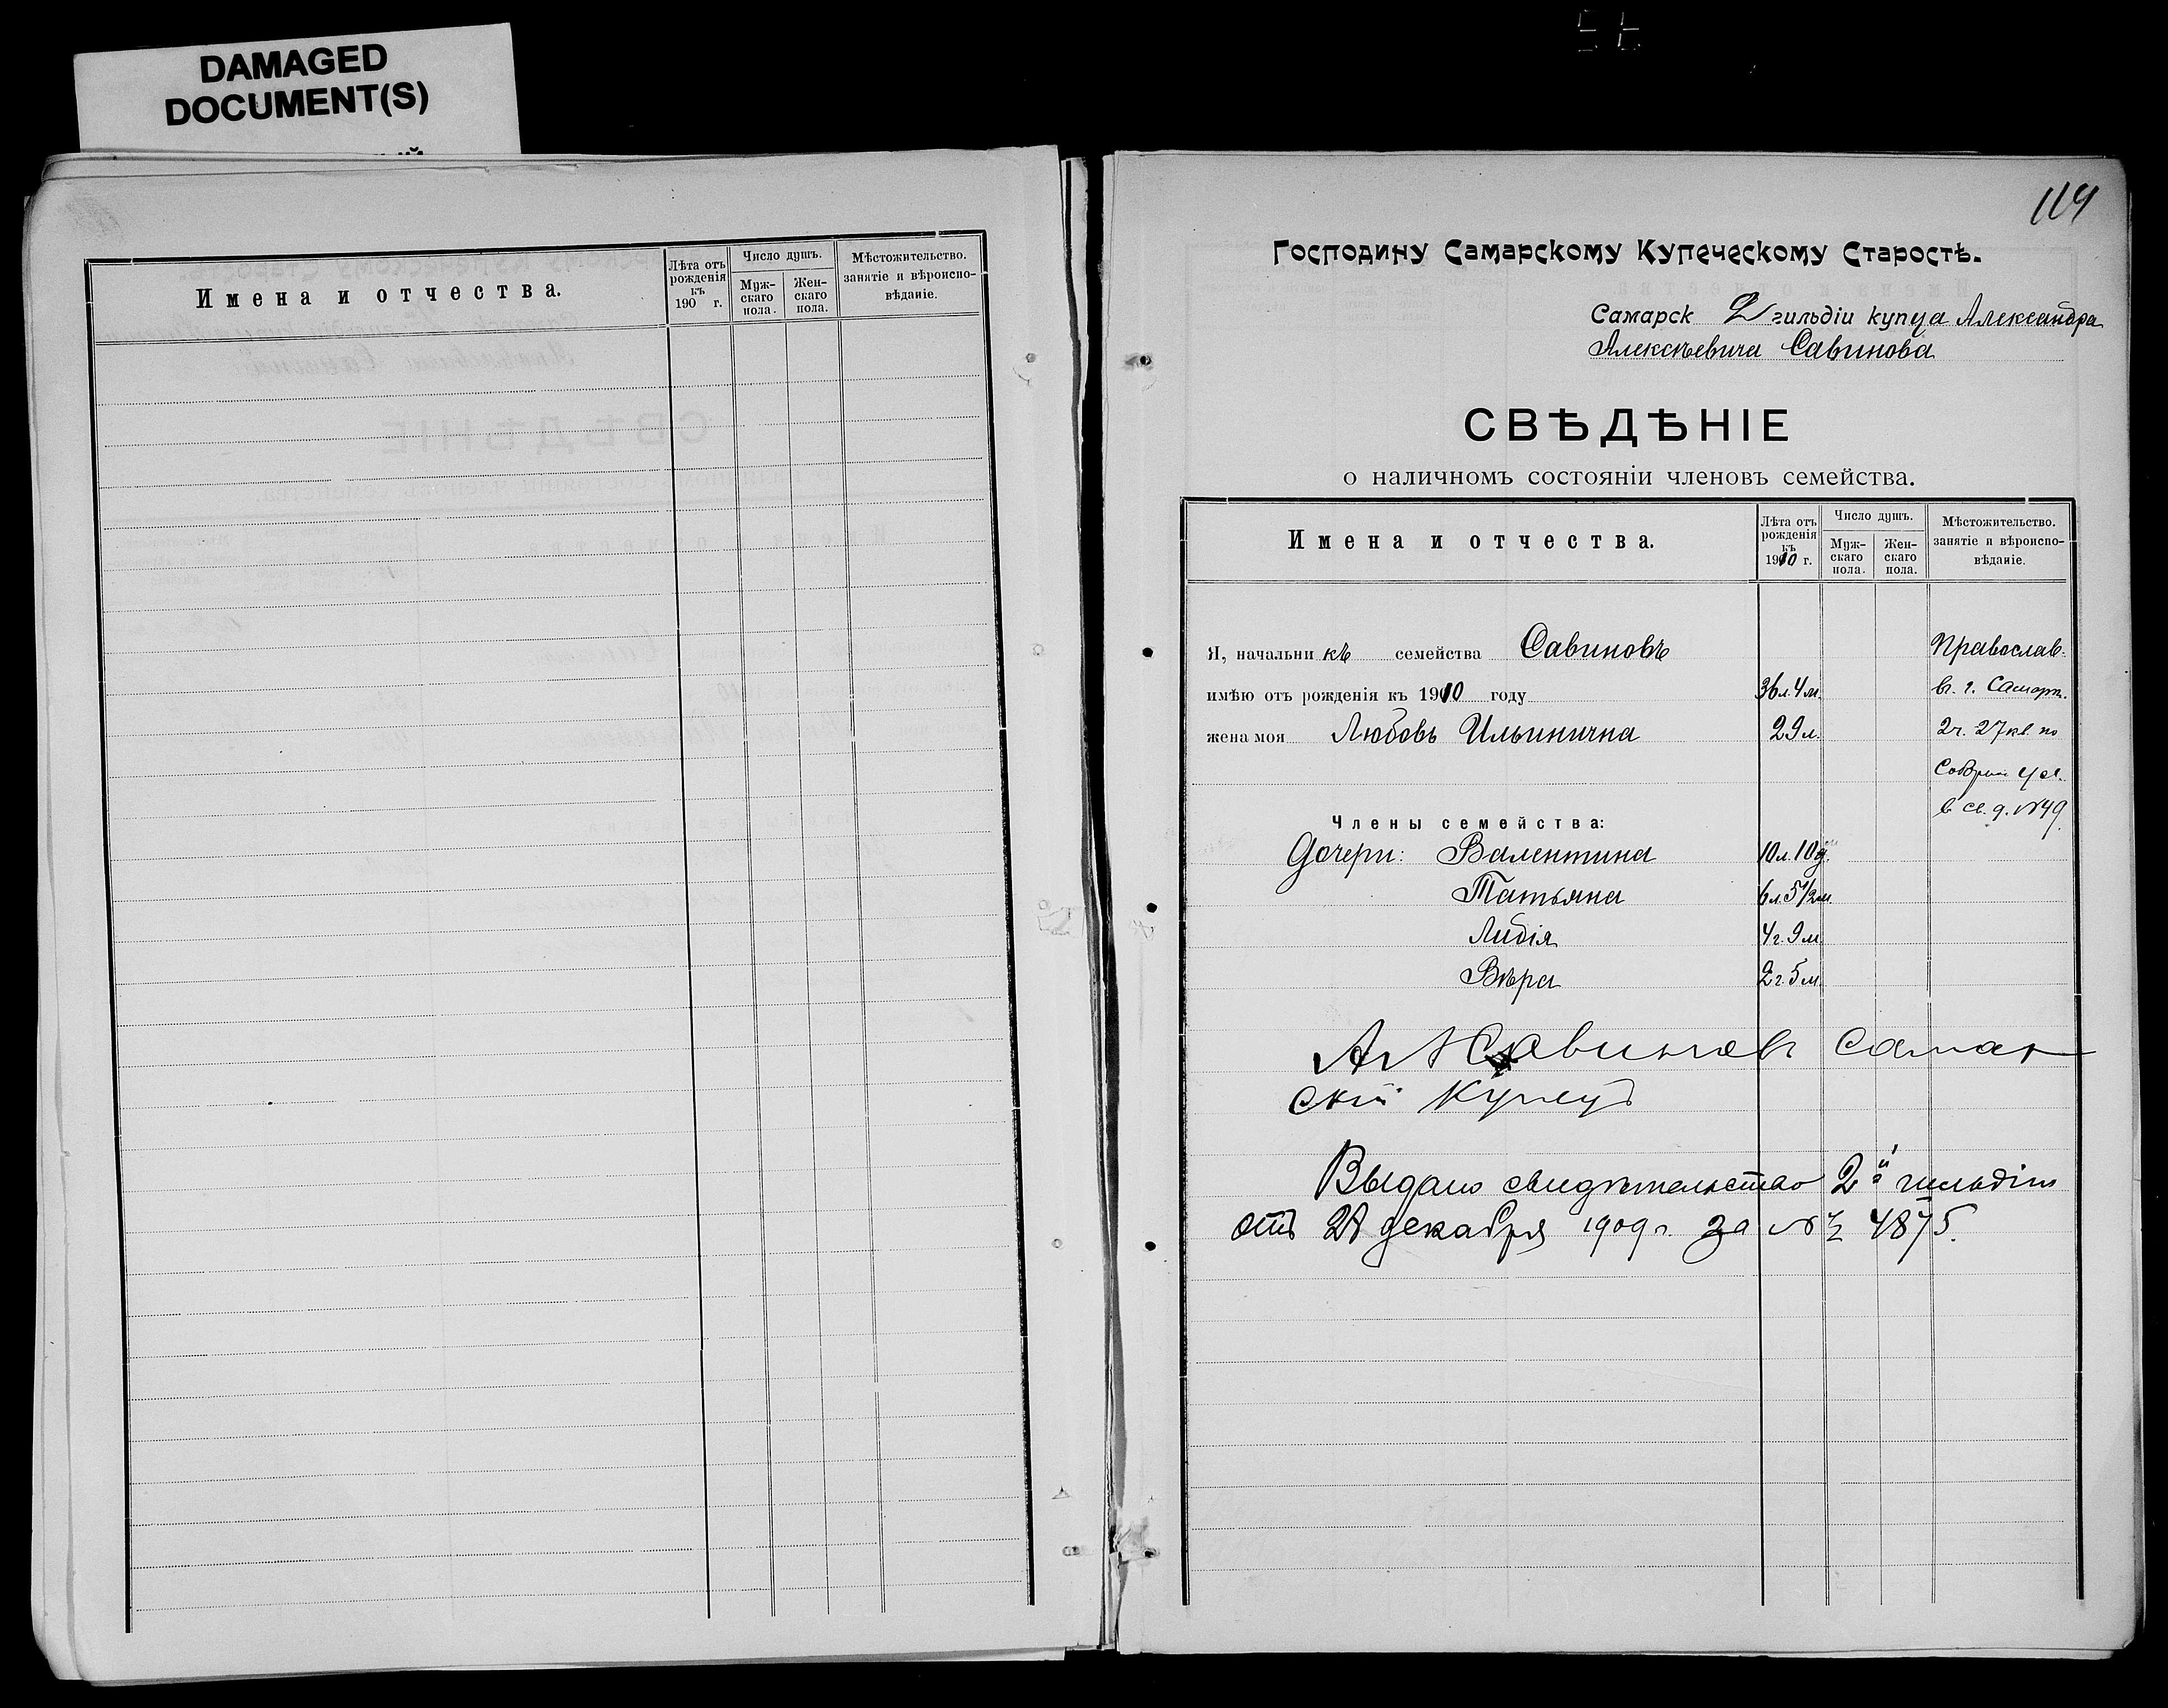 DAMAGED
DOCUMENT(S)
Имена и отчества.
Лѣта отъ
рожденія
къ
190 г.
Число душъ.
Муж-
скаго
пола.
Жен-
скаго
пола.
Мѣстожительство.
занятіе и вѣроиспо-
вѣданіе.
114
Господину Самарскому Купеческому Старостѣ.
Самарск 2 гильдіи купца Александра
Алексѣевича Савинова
СВѢДѢНІЕ
о наличномъ состояніи членовъ семейства.
Имена и отчества.
Лѣта отъ
рожденія
къ
1910 г.
Число душъ.
Муж-
скаго
пола.
Жен-
скаго
пола.
Мѣстожительство.
занятіе и вѣроиспо-
вѣданіе.
Я, начальникъ семейства Савиновъ Православ.
имѣю отъ рожденія къ 1910 году 36 л. 4 м. въ г. Самарѣ.
жена моя Любовь Ильинична 29 л. 2 ч. 27 кв. по
ул.
в св. д. №49
Члены семейства:
Дочери: Валентина 10 л. 10 д.
Татьяна 6 л. 5 1/2 м.
Лидія 4 г. 9 м.
Вѣра 2 г. 5 м.
А Савиновъ Самар
скій Купецъ
Выдано свидѣтельство 2й гильдіи
отъ 28 декабря 1909 г. за № 4875.